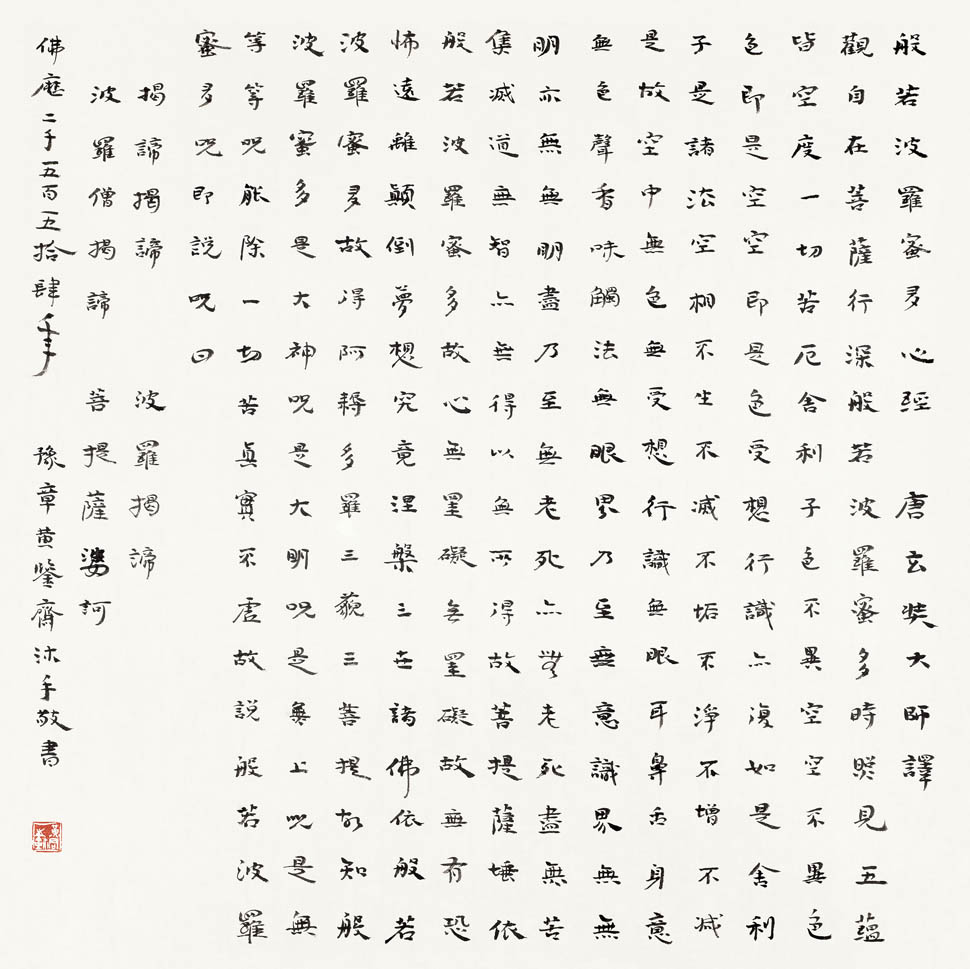 般若波羅蜜多心經 唐玄奘大師譯
觀自在菩薩行深般若波羅蜜多時照見五蘊
皆空度一切苦厄舍利子色不異空空不異色
色即是空空即是色受想行識亦復如是舍利
子是諸法空相不生不滅不垢不淨不增不减
是故空中無色無受想行識無眼耳鼻舌身意
無色聲香味觸法無眼界乃至無意識界無無
明亦無無明盡乃至無老死亦無老死盡無苦
集滅道無智亦無得以無所得故菩提薩埵依
般若波羅蜜多故心無罣礙無罣礙故無有恐
怖遠離顛倒夢想究竟涅槃三世諸佛依般若
波羅蜜多故得阿耨多羅三藐三菩提故知般
波羅蜜多是大神呪是大明呪是無上呪是無
等等呪能除一切苦真實不虛故說般若波羅
蜜多呪即說呪曰
揭諦揭諦 波羅揭諦
波羅僧揭諦 菩提薩婆訶
佛曆二千五百五拾肆年 豫章黃鑒齋沐手敬書